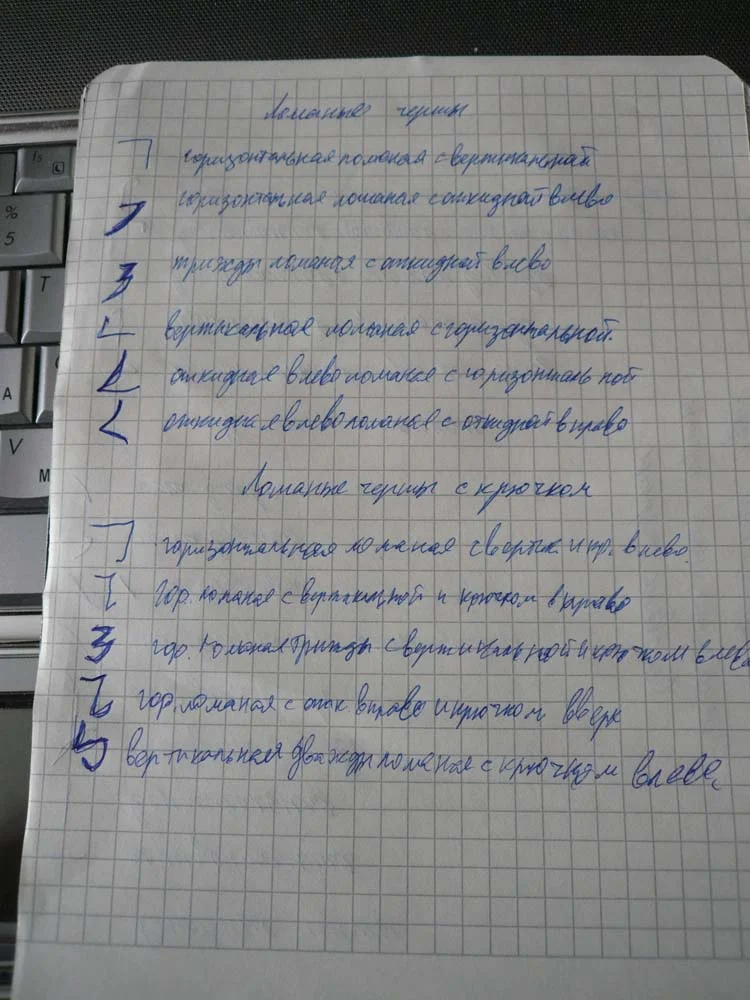 Ломаные черты
горизонтальная ломаная с вертикальной
горизонтальная ломаная с откидной влево
трижды ломаная с откидной влево
вертикальная ломаная с горизонтальной.
откидная влево ломаная с горизонтальной
откидная влево ломаная с откидной вправо
Ломаные черты с крючком
горизонтальная ломаная с вертик. и кр. влево.
гор. ломаная с вертикальной и крючком вправо
гор. ломаная трижды с вертикальной и крючком влево
гор. ломаная с отк вправо и крючком вверх
вертикальная дважды ломаная с крючком влево.
%
5
T
A
V
M